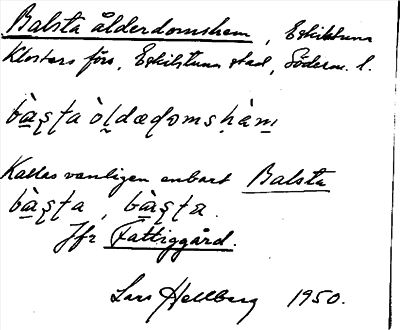 Balsta ålderdomshem, Eskilstuna
Klosters förs, Eskilstuna stad, Söderm. l.
bàʂʈa òl̬dædomsḥàm
Kallas vanligen enbart Balsta
bàʂʈa, bàʂʈa.
Jfr Fattiggård.
Lars Hellberg 1950.